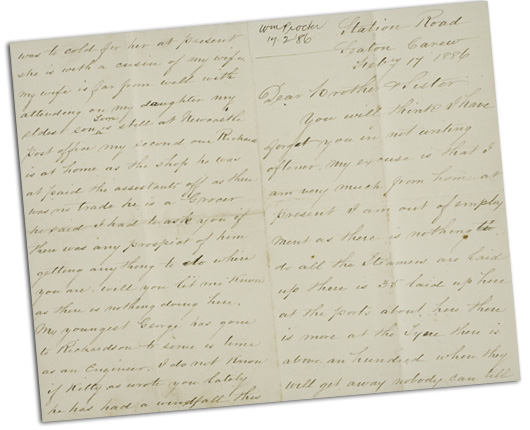 Wm Procter
17.2.'86
Station Road
Seaton Carew
Febry 17 1886
Dear Brother & Sister
You will think I have
forgot you in not writing
oftener. My excuse is that I
am very much from home at
present I am out of employ
ment as there is nothing to
do all the Steamers are laid
up there is 35 laid up here
at the ports about here there
is more at the Tyne there is
above an hundred when they
will get away nobody can tell
was to cold for her at present
she is with a cusen of my wife
my wife is far from well with
attending on my daughter my
eldes son is still at Newcastle
post office my second one Richard
is at home as the shop he was
at paid the assistants off as there
was no trade he is a Grocer
he said I had to ask you if
there was any prospect of him
getting anything to do where
you are. Will you let me know
as there is nothing doing here.
My youngest George has gone
to Richardson to serve is time
as an Engineer. I do not know
if Kitty as wrote you lately
he has had a windfall this